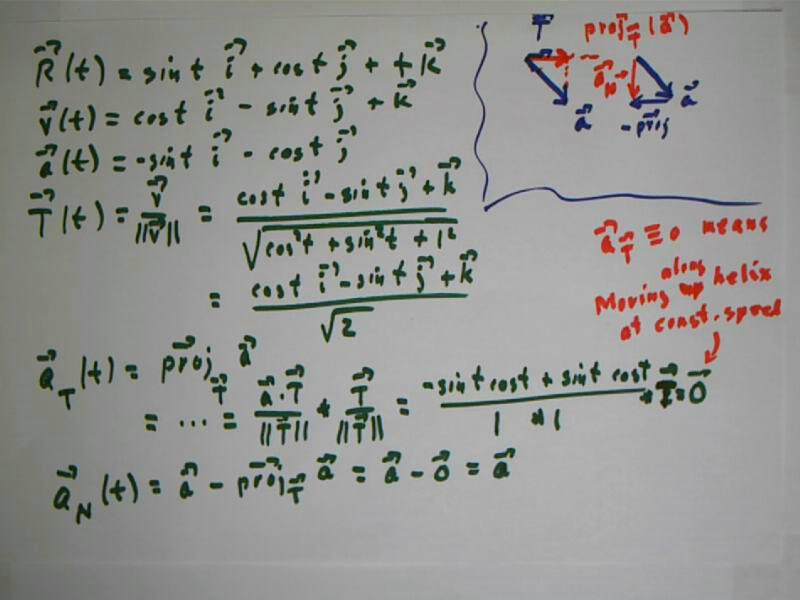 R⃗(t) = sin t i⃗ + cos t j⃗ + t k⃗
v⃗(t) = cos t i⃗ - sin t j⃗ + k⃗
a⃗(t) = -sin t i⃗ - cos t j⃗
T⃗(t) = v⃗ / ||v⃗|| = (cos t i⃗ - sin t j⃗ + k⃗) / √(cos²t + sin²t + 1²)
= (cos t i⃗ - sin t j⃗ + k⃗) / √2
a⃗_T(t) = proj⃗_T⃗ a⃗
= ... = (a⃗ · T⃗) / ||T⃗|| * T⃗ / ||T⃗|| = (-sin t cos t + sin t cos t) / (1 * 1) * T⃗ = 0⃗
a⃗_N(t) = a⃗ - proj⃗_T⃗ a⃗ = a⃗ - 0⃗ = a⃗
T⃗ proj⃗_T⃗(a⃗)
a⃗_N a⃗
a⃗ -proj⃗
a⃗_T⃗ ≡ 0 means
along
Moving up helix
at const. speed